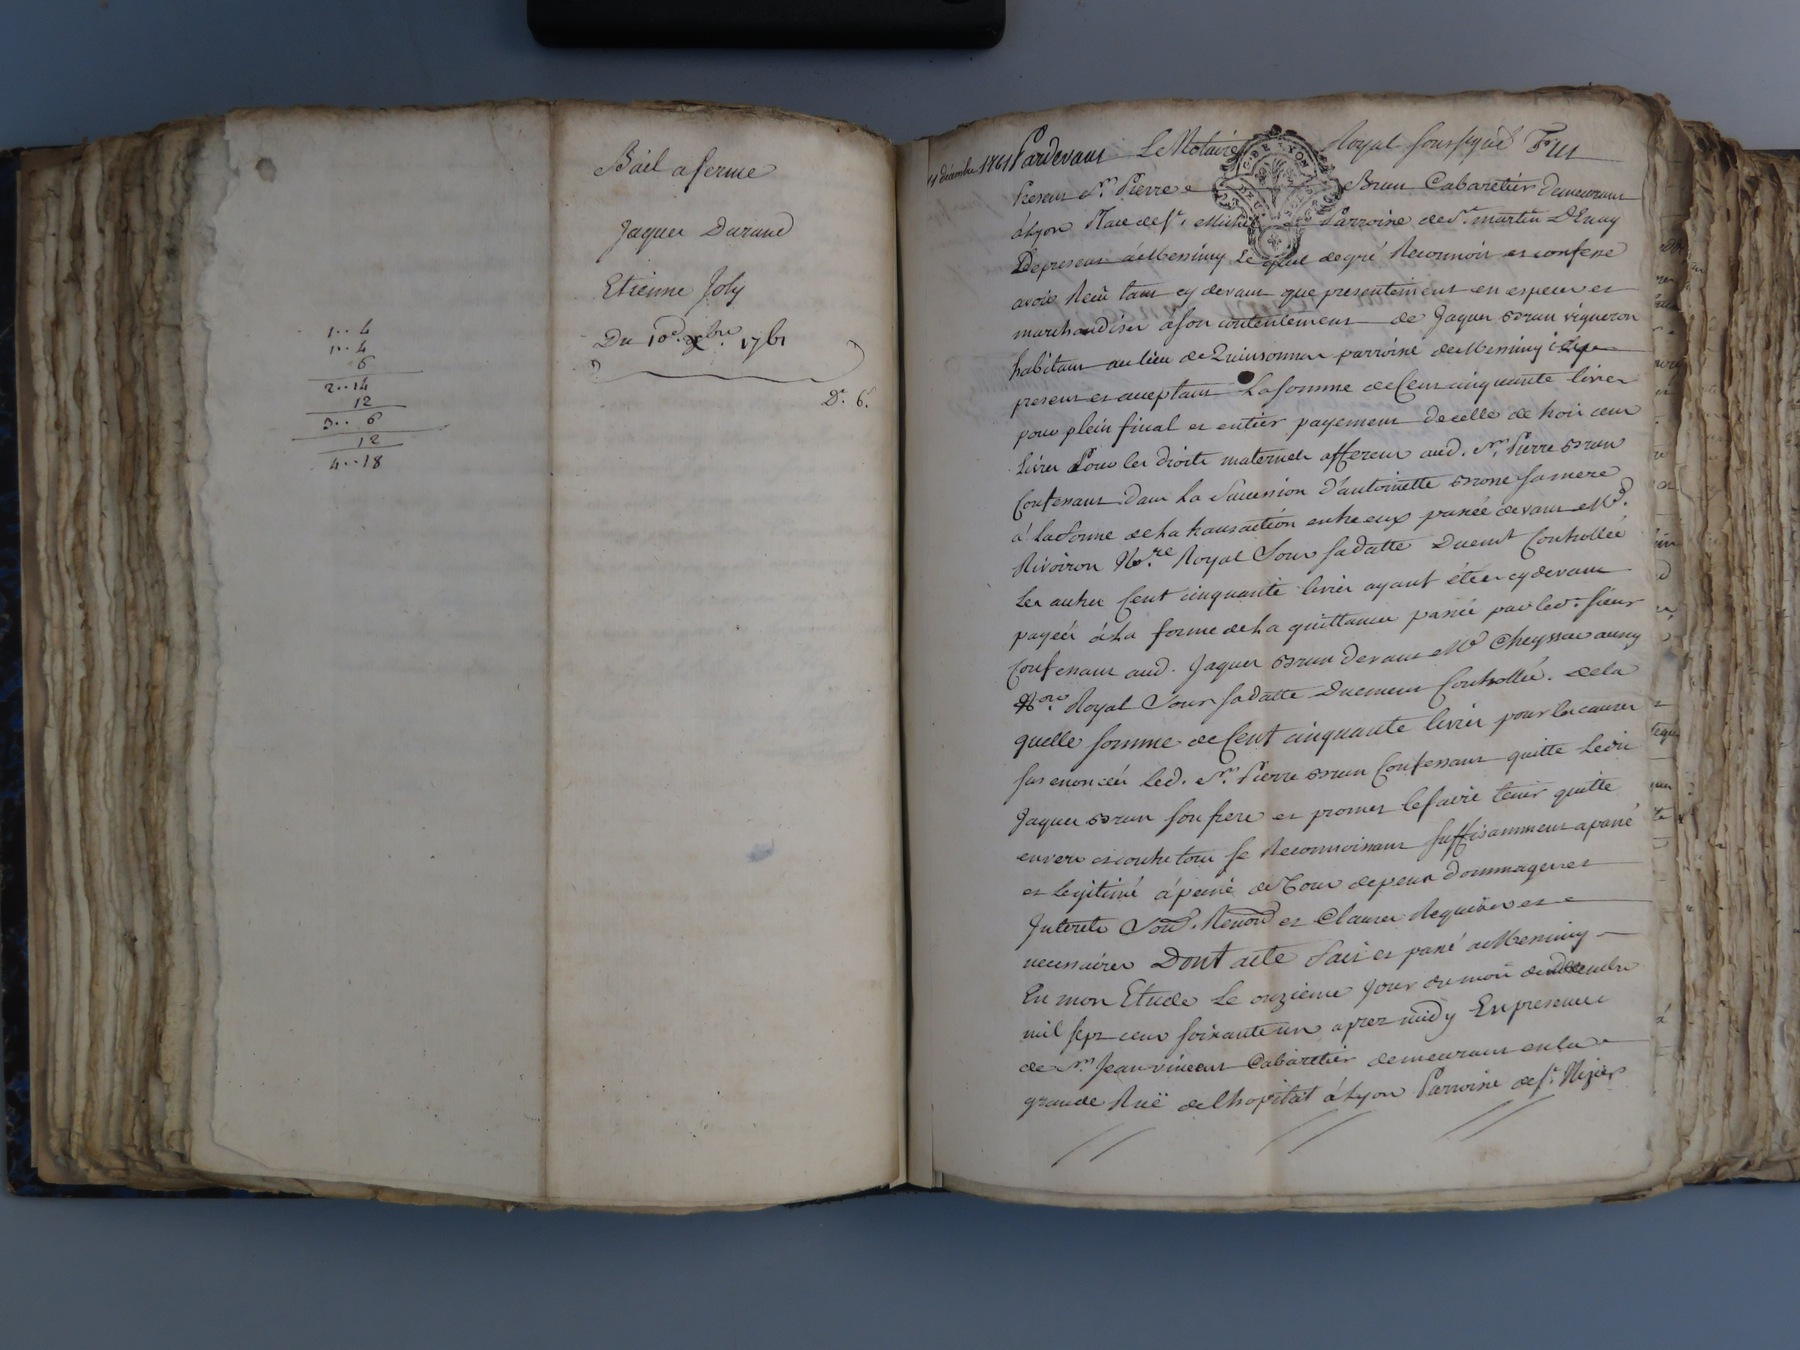 Bail a ferme
Jaques Durand
Etienne Joly
Du 10e. xbre. 1761
D. 6.
1.. 4
1.. 4
6
2..14
12
3.. 6
12
4..18
11 décembre 1761
Pardevant Le Notaire Royal soussigné Fut
G. DE LYON
Present Sr. Pierre Brun Cabaretier demeurant
à Lyon Place de St. Michel Parroisse de St. martin D'Enay
De present à Messimy Le quel de gré Reconnoit et confesse
avoir Reçu tant cy devant que presentement en especes et
marchandises à son contentement de Jaques Brun vigneron
habitant au lieu de Quinsonnas parroisse de Messimy icy
present et acceptant La somme de Cent cinquante livres
pour plein final et entier payement de celle de trois cent
Livres Pour les droits maternels afferent aud. Sr. Pierre Brun
Confessant dans La Succession d'antoinette Brone sa mere
à La forme de La transaction entre eux passée devant Me.
Rivoiron Nre. Royal Sous sa datte Duemt Controllée
Les autres Cent cinquante livres ayant étées cy devant
payées à La forme de La quittance passée par led. sieur
Confessant aud. Jaques Brun devant Me Cheyssac aussy
Nore. Royal Sous sa datte Duement Controllée. de la
quelle somme de Cent cinquante livres pour les causes
sus enoncées Led. Sr. Pierre Brun Confessant quitte Ledit
Jaques Brun son frere et promet le faire tenir quitte
envers et contre tous se Reconnoissant suffisamment apané
et Legitimé à peine de Tous depens dommages et
Interets Soud. Renond et Clauses Requises et
necessaires Dont acte Fait et passé à Messimy
En mon Etude Le onzieme Jour du mois de decembre
mil sept cent soixante un aprez midy En presence
de Sr. Jean vincent Cabaretier demeurant en la
grande Ruë de l'hopital à Lyon Parroisse de St. Nizier